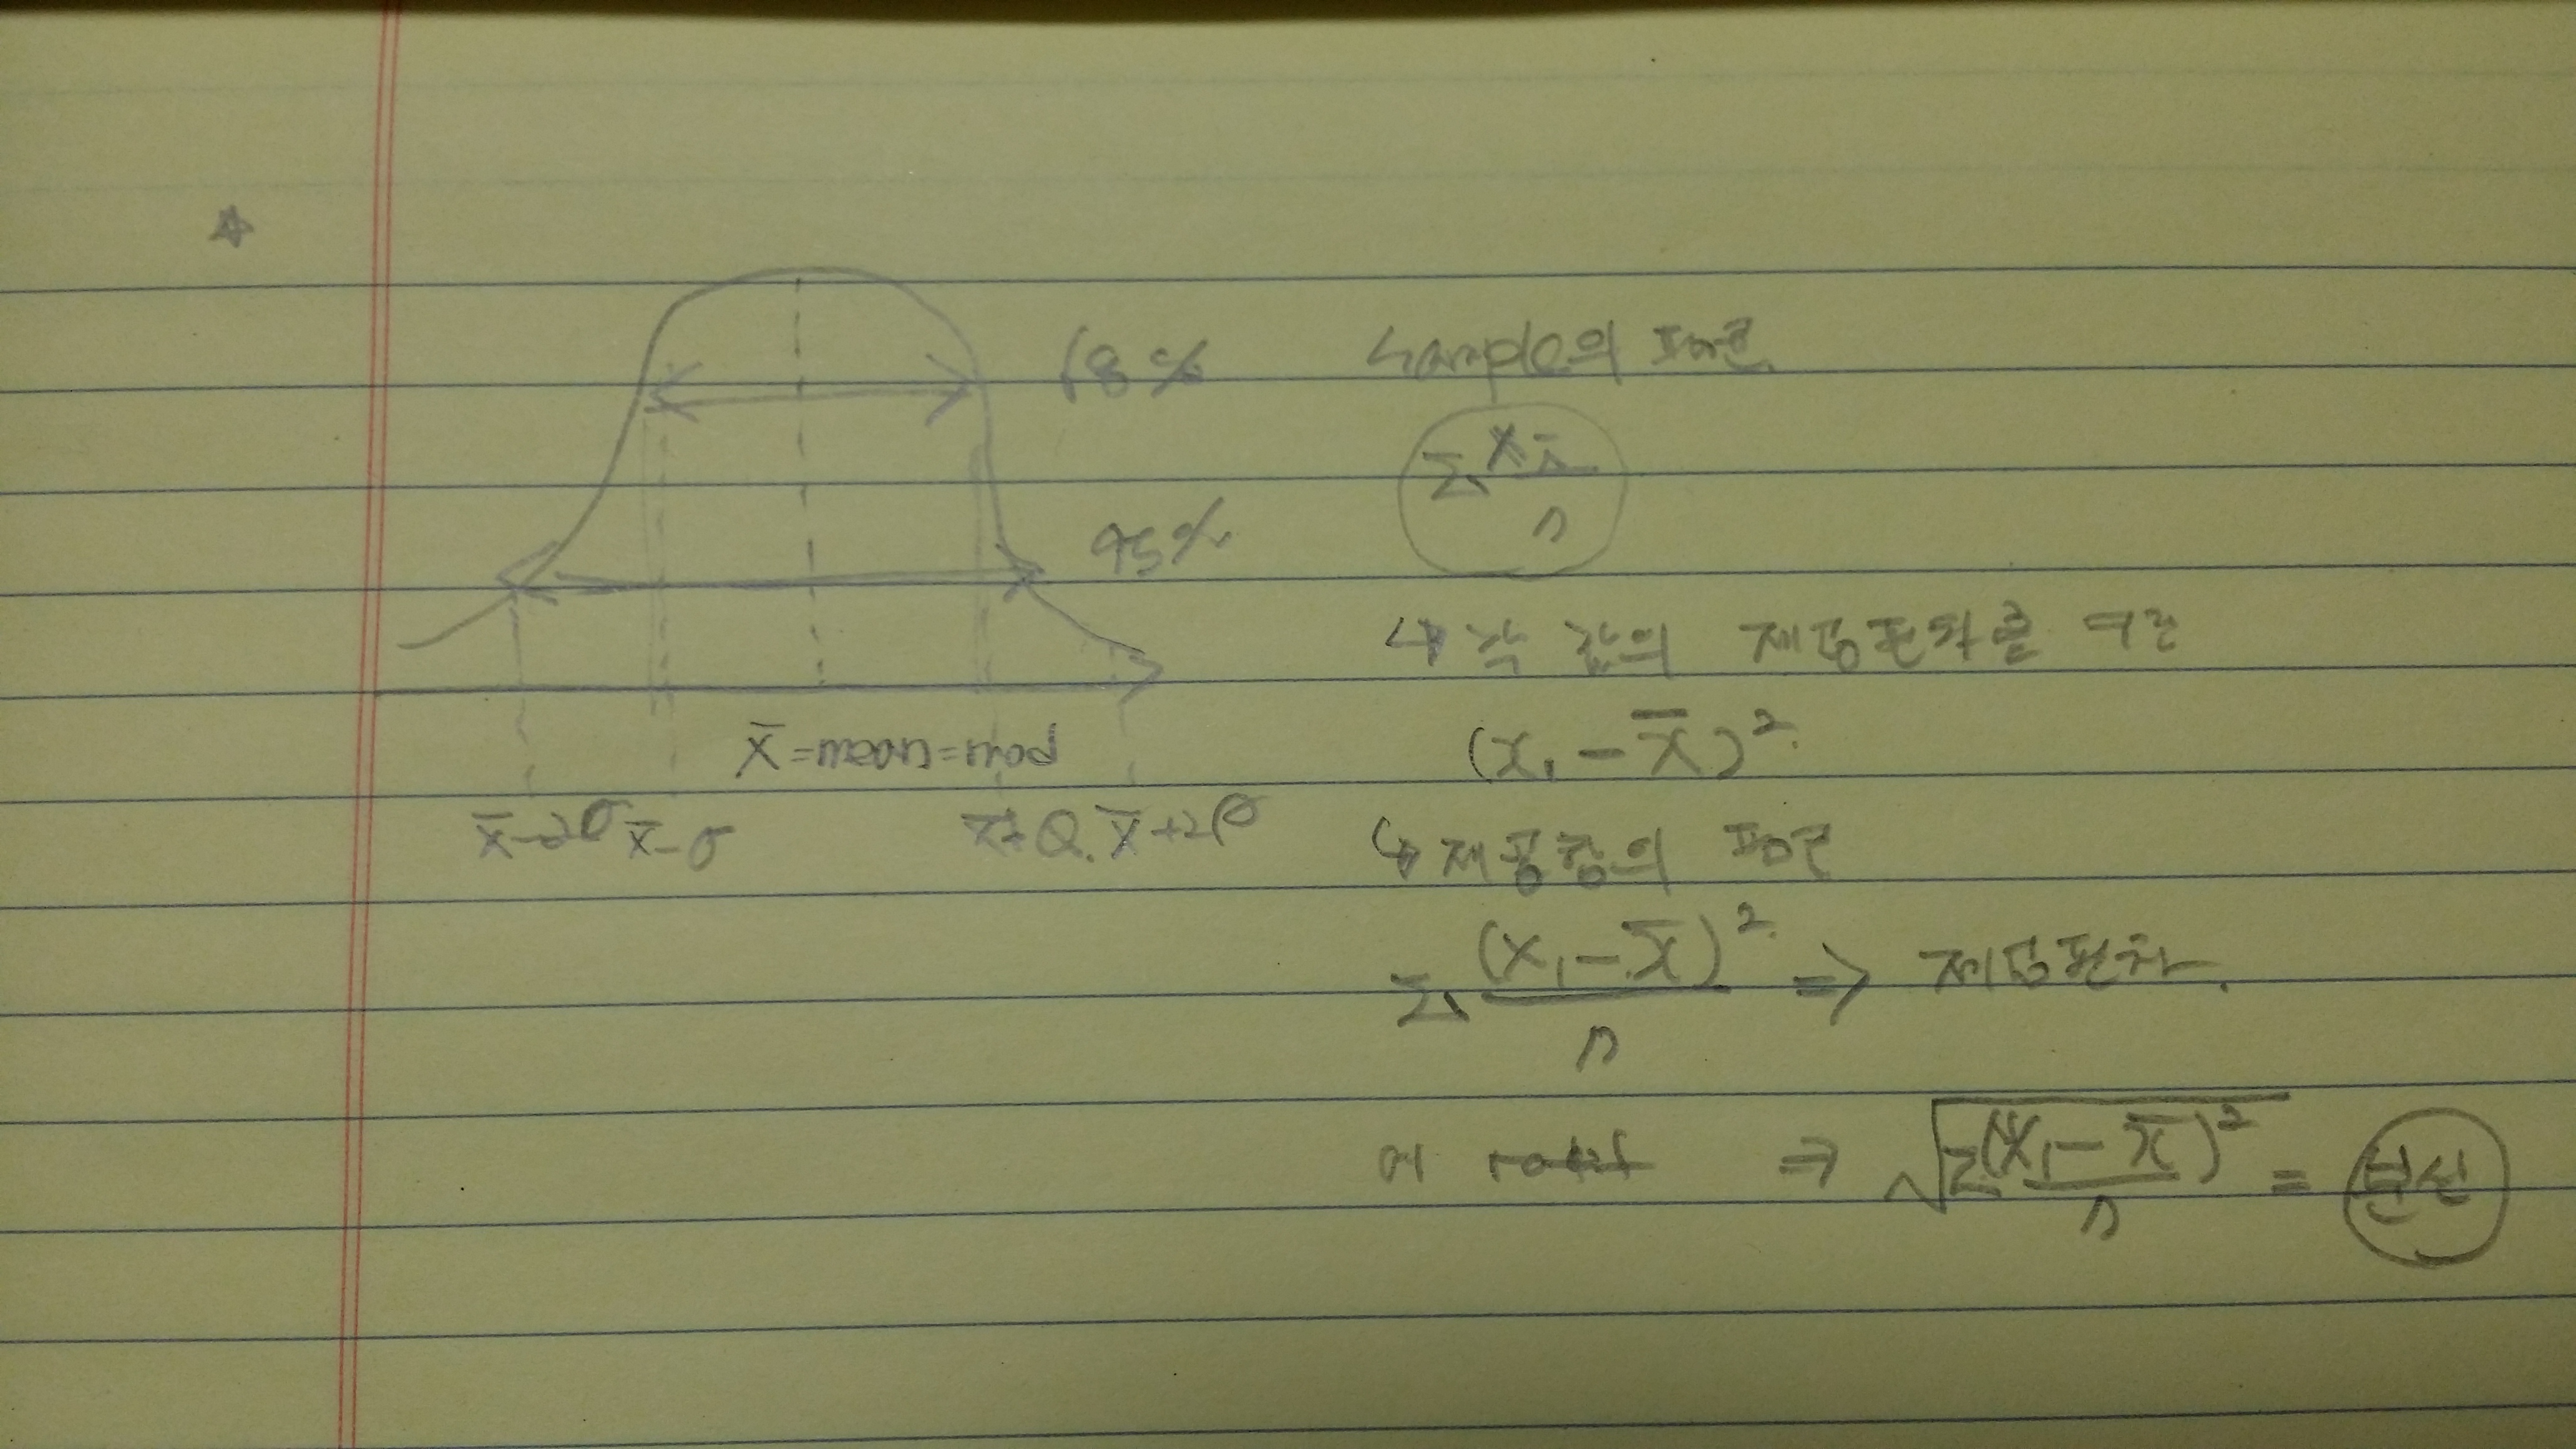 68%
95%
x̄ = mean = mod
x̄-2σ x̄-σ x̄+σ. x̄+2σ
sample의 평균
Σ xi/n
↳ 각 값의 제곱편차를 구한
(x₁ - x̄)²
↳ 제곱합의 평균
Σ (x₁ - x̄)²/n ⇒ 제곱편차.
에 root ⇒ √Σ(x₁ - x̄)²/n = 분산